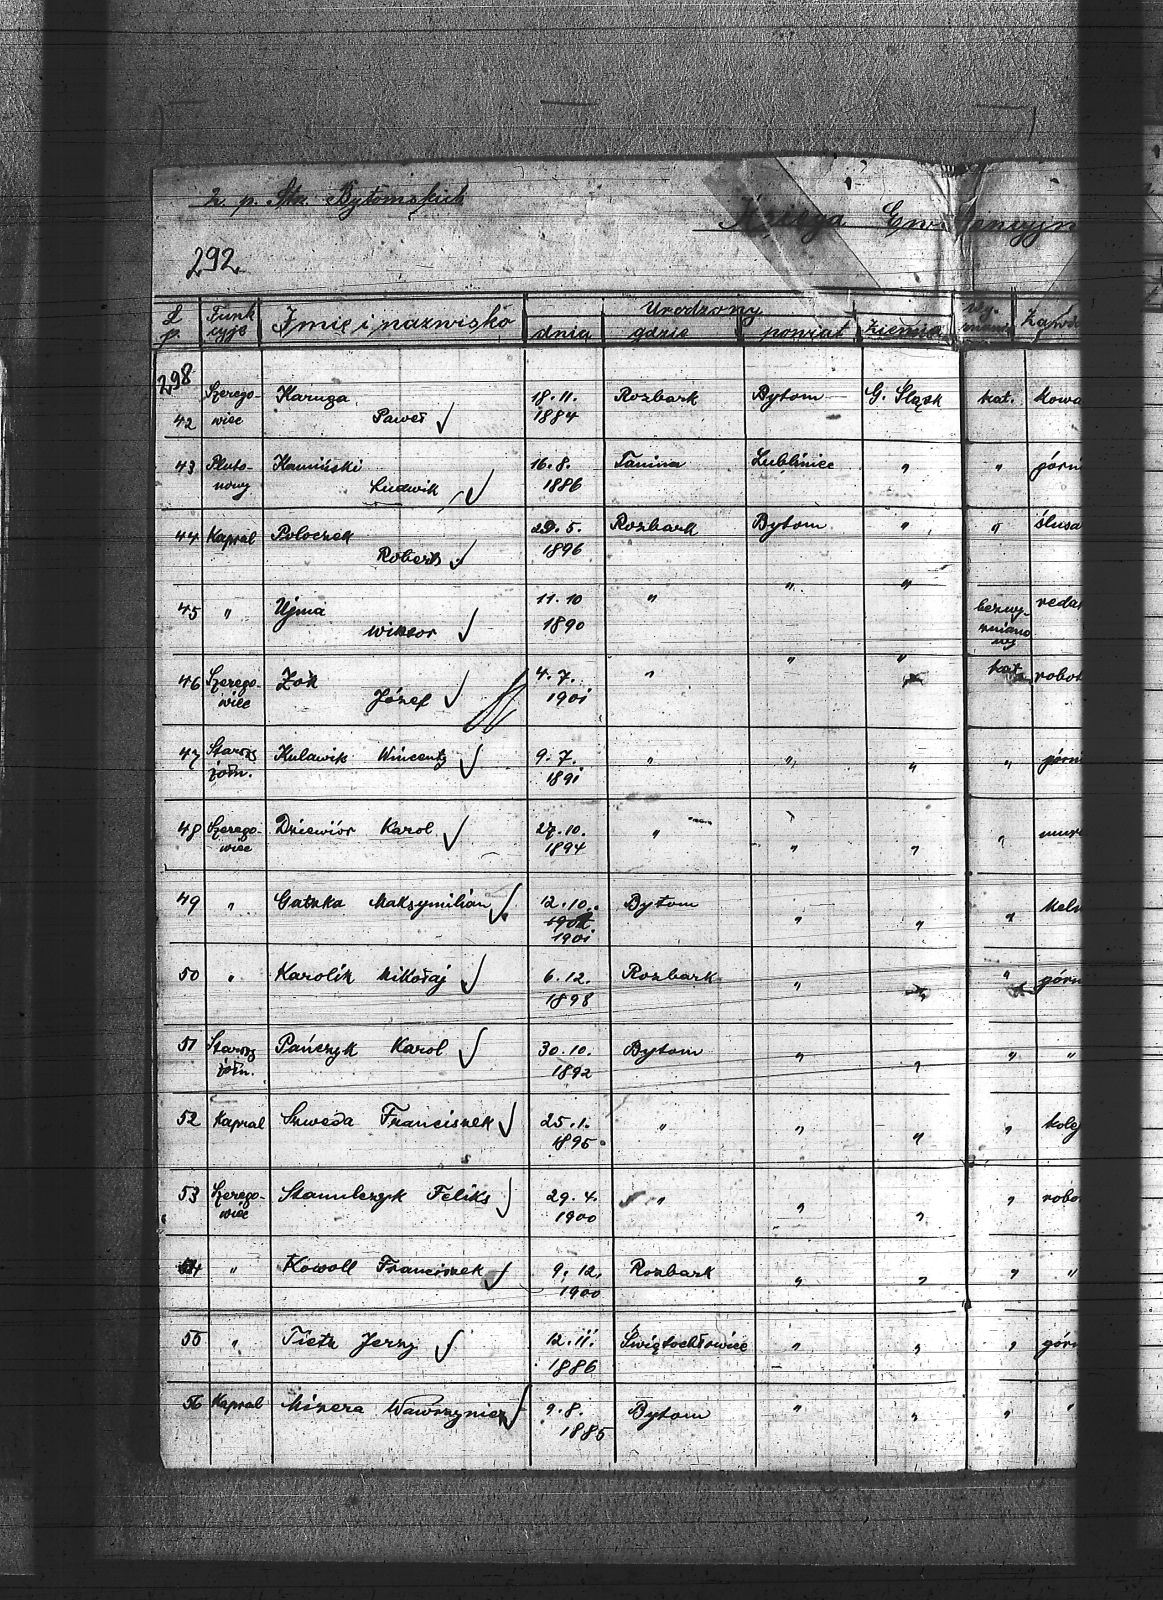 2 p. Str. Bytomskich
Księga Ewidencyjn
292
L. p. Funkcyje Imię i nazwisko Urodzony dnia gdzie powiat ziemia Wyznanie Zawó
298
42 Szeregowiec Karuga Paweł 18.11. 1884 Rozbark Bytom G. Śląsk kat. kowa
43 Plutonowy Kamiński Ludwik 16.8. 1886 Lubliniec " " górni
44 Kapral Poloczek Robert 29.5. 1896 Rozbark Bytom " " ślusa
45 " Ujma Wiktor 11.10 1890 " " " bezwyznaniowy redak
46 Szeregowiec Żok Józef 4.7. 1901 " " " kat. robot
47 Starszy żołn. Kulawik Wincenty 9.7. 1891 " " " " górni
48 Szeregowiec Dziewiór Karol 27.10. 1894 " " " " mura
49 " Gatzka Maksymilian 12.10. 1901 Bytom " " " keln
50 " Karolik Mikołaj 6.12. 1898 Rozbark " " " górni
51 Starszy żołn. Pańczyk Karol 30.10. 1892 Bytom " " " "
52 Kapral Szweda Franciszek 25.1. 1895 " " " " kolej
53 Szeregowiec Feliks 29.4. 1900 " " " " robo
54 " Kowoll Franciszek 9.12. 1900 Rozbark " " " "
55 " Tietz Jerzy 12.11. 1886 Świętochłowice " " " górn
56 Kapral Mizera Wawrzyniec 9.8. 1885 Bytom " " " "